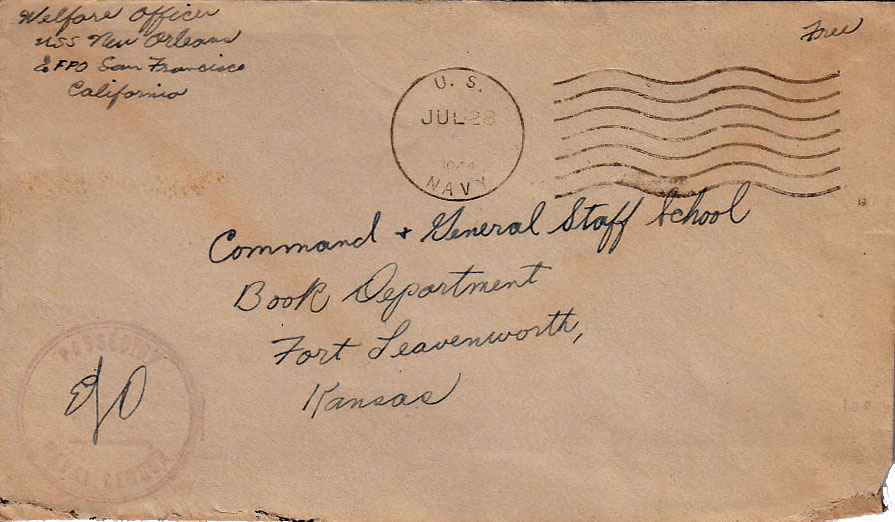 Welfare Officer
USS New Orleans
℅ FPO San Francisco
California
Free
U. S.
JUL 28
1944
NAVY
Command + General Staff School
Book Department
Fort Leavenworth,
Kansas
PASSED BY
NAVAL CENSOR